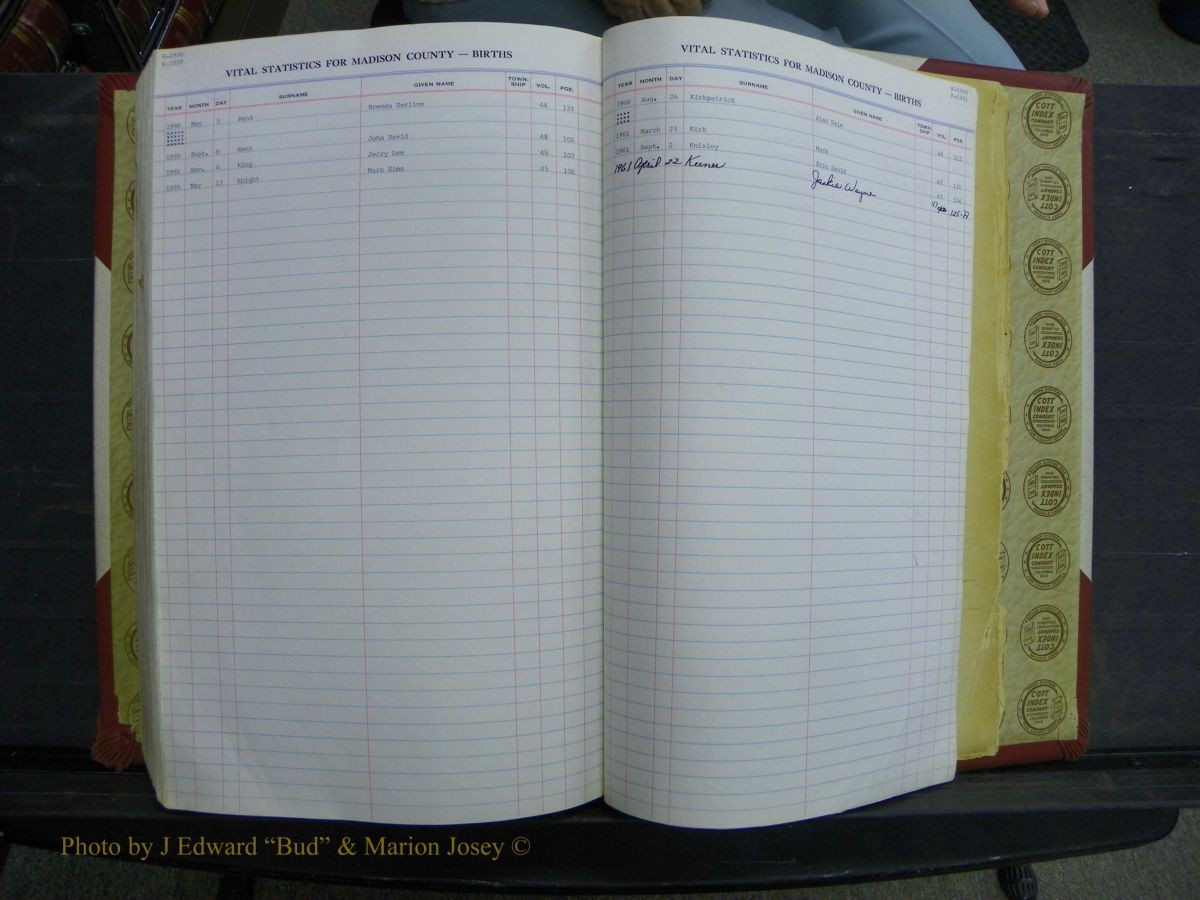 K-1958
K-1958
VITAL STATISTICS FOR MADISON COUNTY — BIRTHS
YEAR MONTH DAY SURNAME GIVEN NAME TOWN-SHIP VOL. PGE.
1958 May Kent Brenda Darline 44 133
Sept. 8 Kent John David 106
Nov. 4 King Jerry Lee 45 107
May Knight Mark Sims 45 108
VITAL STATISTICS FOR MADISON COUNTY — BIRTHS
YEAR MONTH DAY SURNAME GIVEN NAME TOWN-SHIP VOL. PGE.
1960 Aug. 26 Kirkpatrick Alan Dale
1961 March 23 Kirk Mark
1961 Sept. 2 Knisley Eric David 47
1961 April 22 Keener Jackie Wayne 47 125-A
COTT INDEX COMPANY COLUMBUS OHIO
Photo by J Edward “Bud” & Marion Josey ©